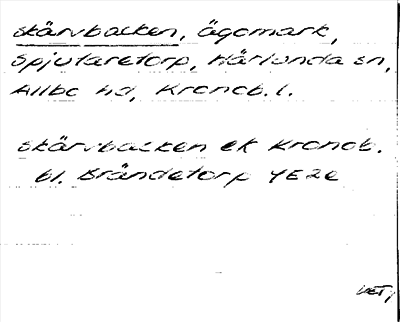 Skärvbacken, ägomark,
Spjutaretorp, Härlunda sn,
Allbo hd, Kronob. l.
Skärvbacken ek Kronob.
bl. Brändetorp 4E2e